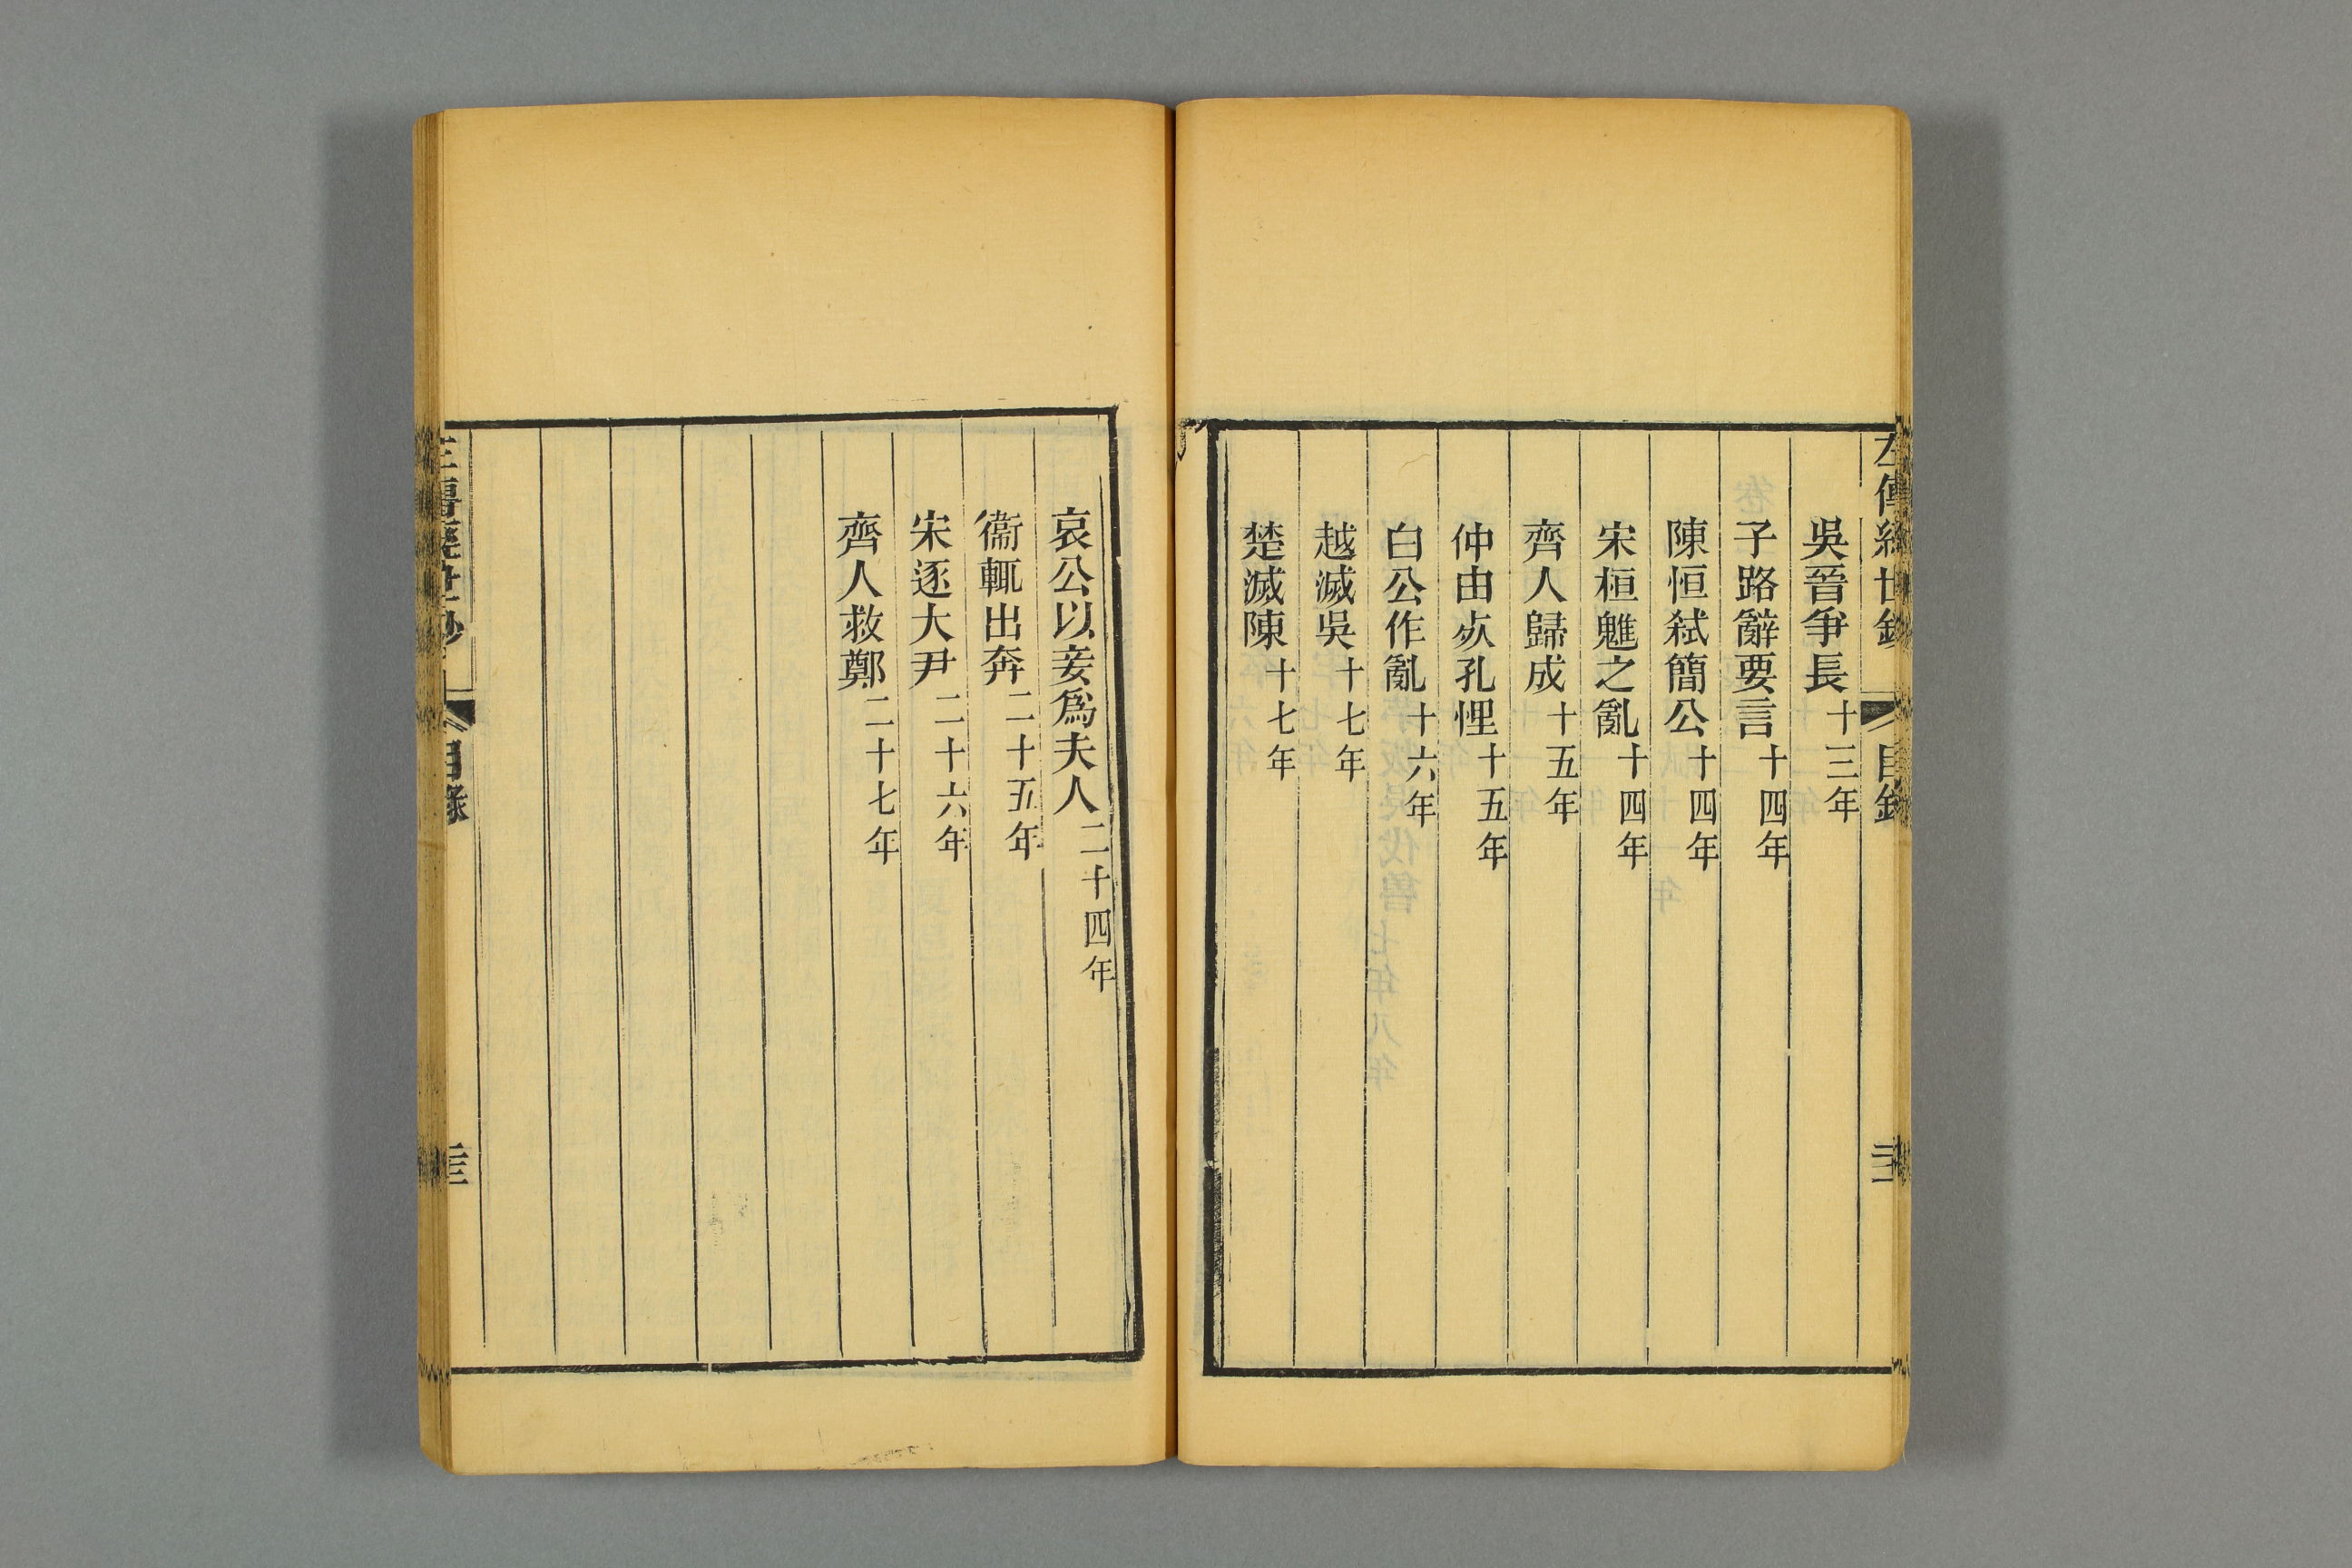 左傳經世鈔 目錄
吳晉爭長十三年
子路辭要言十四年
陳恒弑簡公十四年
宋桓魋之亂十四年
齊人歸成十五年
仲由𣦸孔悝十五年
白公作亂十六年
越滅吳十七年
楚滅陳十七年
哀公以妾爲夫人二十四年
衞輒出奔二十五年
宋逐大尹二十六年
齊人救鄭二十七年
左傳經世鈔 目錄